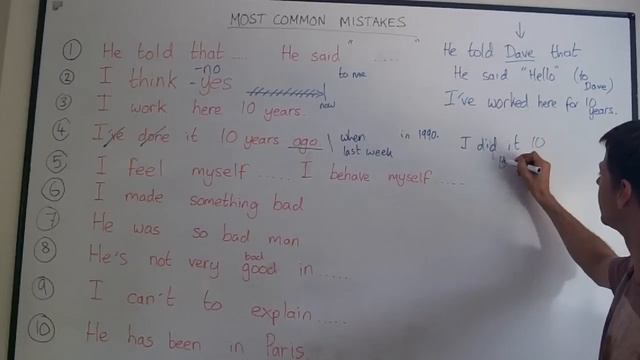 MOST COMMON MISTAKES
① He told that .... He said " .... "
He told Dave that
② I think -yes
-no
to me
He said "Hello" (to Dave)
③ I work here 10 years.
now
I've worked here for 10 years.
④ I've done it 10 years ago
when
last week
in 1990.
I did it 10
y
⑤ I feel myself ..... I behave myself ....
⑥ I made something bad
⑦ He was so bad man
⑧ He's not very good in .....
bad
⑨ I can't to explain .....
⑩ He has been in Paris